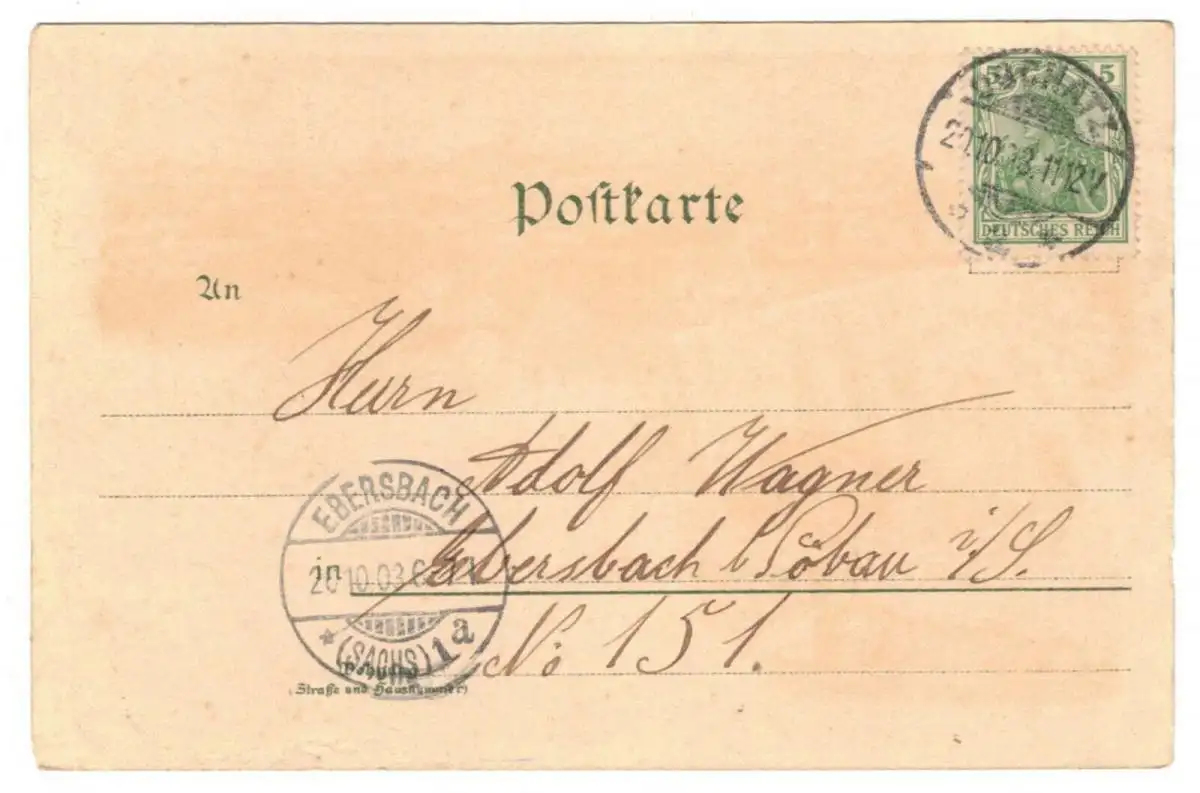 5 5
OSCHATZ
20.10.03.11-12V.
DEUTSCHES REICH
Postkarte
An
Herrn
Adolf Wagner
EBERSBACH
Ebersbach b Löbau i/S.
in
20.10.03
(SACHS) 1a
No 151.
Wohnung
(Straße und Hausnummer)